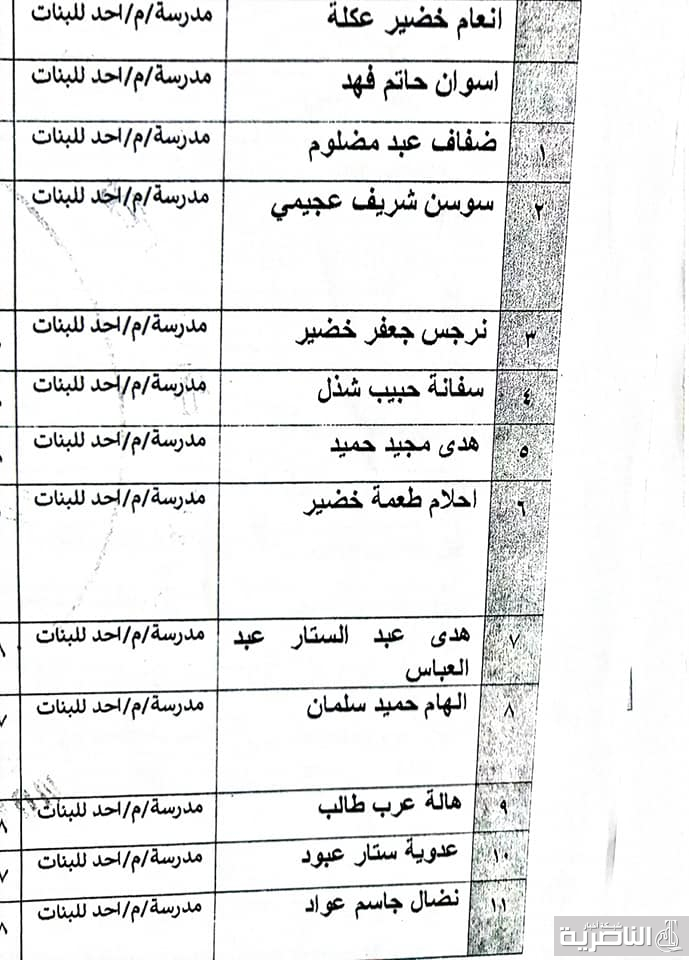 انعام خضير عكلة مدرسة/م/احد للبنات
اسوان حاتم فهد مدرسة/م/احد للبنات
١ ضفاف عبد مضلوم مدرسة/م/احد للبنات
٢ سوسن شريف عجيمي مدرسة/م/احد للبنات
٣ نرجس جعفر خضير مدرسة/م/احد للبنات
٤ سفانة حبيب شذل مدرسة/م/احد للبنات
٥ هدى مجيد حميد مدرسة/م/احد للبنات
٦ احلام طعمة خضير مدرسة/م/احد للبنات
٧ هدى عبد الستار عبد مدرسة/م/احد للبنات
العباس
٨ الهام حميد سلمان مدرسة/م/احد للبنات
٩ هالة عرب طالب مدرسة/م/احد للبنات
١٠ عدوية ستار عبود مدرسة/م/احد للبنات
١١ نضال جاسم عواد مدرسة/م/احد للبنات
شبكة اخبار
الناصرية